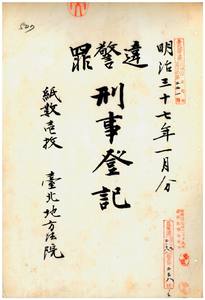 明治三十七年一月分
違警罪
刑事登記
紙数壱枚
臺北地方法院